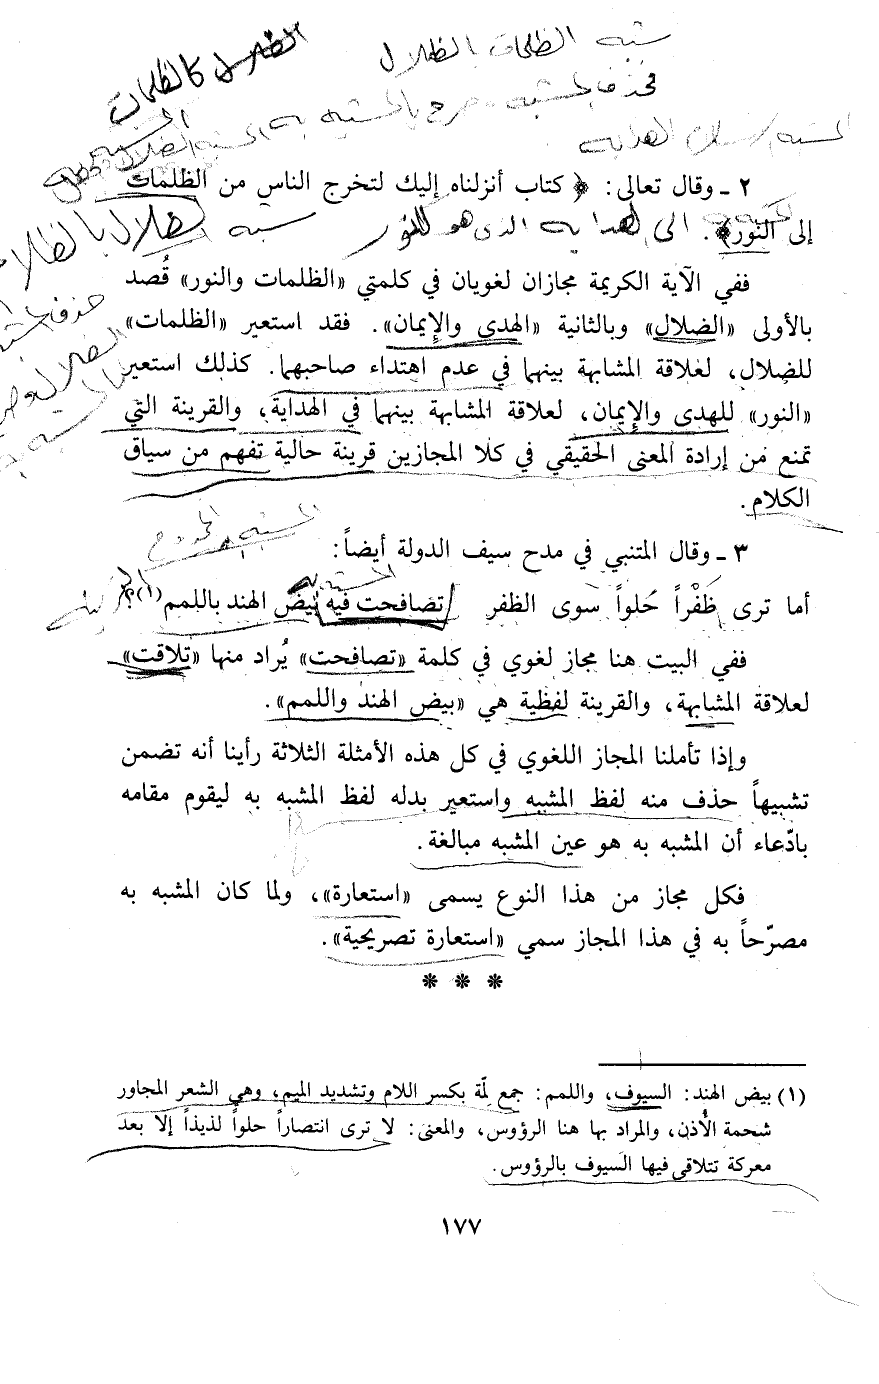 الضلال كالظلمات
شبه الظلمات بالظلال
فحذف المشبه وصرح بالمشبه به
٢ ـ وقال تعالى: ﴿ كتاب أنزلناه إليك لتخرج الناس من الظلمات
إلى النور﴾.
شبه الضلال بالظلا
ففي الآية الكريمة مجازان لغويان في كلمتي «الظلمات والنور» قُصد
بالأولى «الضلال» وبالثانية «الهدى والإيمان». فقد استعير «الظلمات»
للضلال، لعلاقة المشابهة بينهما في عدم اهتداء صاحبهما. كذلك استعير
«النور» للهدى والإيمان، لعلاقة المشابهة بينهما في الهداية، والقرينة التي
تمنع من إرادة المعنى الحقيقي في كلا المجازين قرينة حالية تفهم من سياق
الكلام.
٣ ـ وقال المتنبي في مدح سيف الدولة أيضاً:
المشبه به
أما ترى ظَفْراً حَلواً سوى الظفر تصافحت فيه بيض الهند باللمم(١)؟
ففي البيت هنا مجاز لغوي في كلمة «تصافحت» يُراد منها «تلاقت»
لعلاقة المشابهة، والقرينة لفظية هي «بيض الهند واللمم».
وإذا تأملنا المجاز اللغوي في كل هذه الأمثلة الثلاثة رأينا أنه تضمن
تشبيهاً حذف منه لفظ المشبه واستعير بدله لفظ المشبه به ليقوم مقامه
بادّعاء أن المشبه به هو عين المشبه مبالغة.
فكل مجاز من هذا النوع يسمى «استعارة»، ولما كان المشبه به
مصرّحاً به في هذا المجاز سمي «استعارة تصريحية».
* * *
(١) بيض الهند: السيوف، واللمم: جمع لمّة بكسر اللام وتشديد الميم، وهي الشعر المجاور
شحمة الأُذن، والمراد بها هنا الرؤوس، والمعنى: لا ترى انتصاراً حلواً لذيذاً إلا بعد
معركة تتلاقى فيها السيوف بالرؤوس.
١٧٧